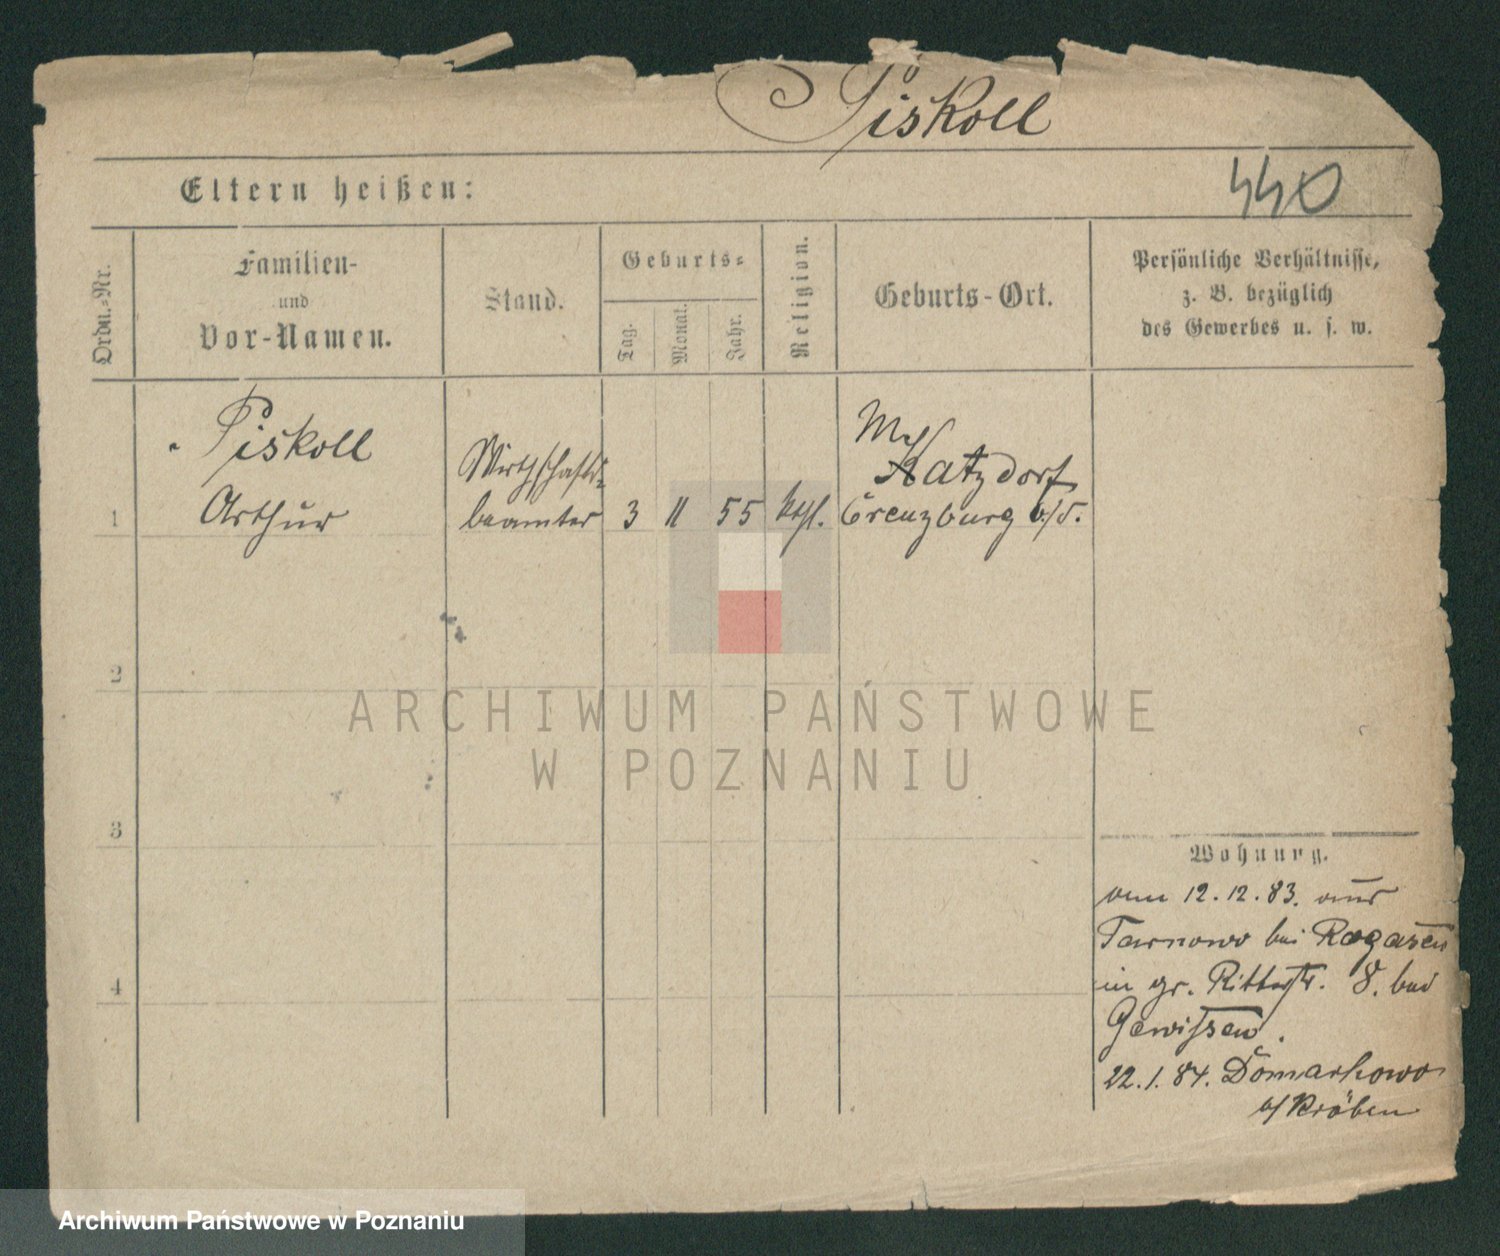 Piskoll
440
Eltern heißen:
Ordn.-Nr.
Familien-
und
Vor-Namen.
Stand.
Geburts-
Tag.
Monat.
Jahr.
Religion.
Geburts-Ort.
Persönliche Verhältnisse,
z. B. bezüglich
des Gewerbes u. s. w.
1
Piskoll
Arthur
Wirthschafts-
beamter
3
11
55
kthl.
Matzdorf
Creuzburg o/S.
2
3
4
Wohnung.
vom 12.12.83. aus
Tarnowo bei Rogasen
in gr. Ritterstr. 8. bei
Gewissen.
22.1.84. Domachowo
b/ Kröben
ARCHIWUM PAŃSTWOWE
W POZNANIU
Archiwum Państwowe w Poznaniu